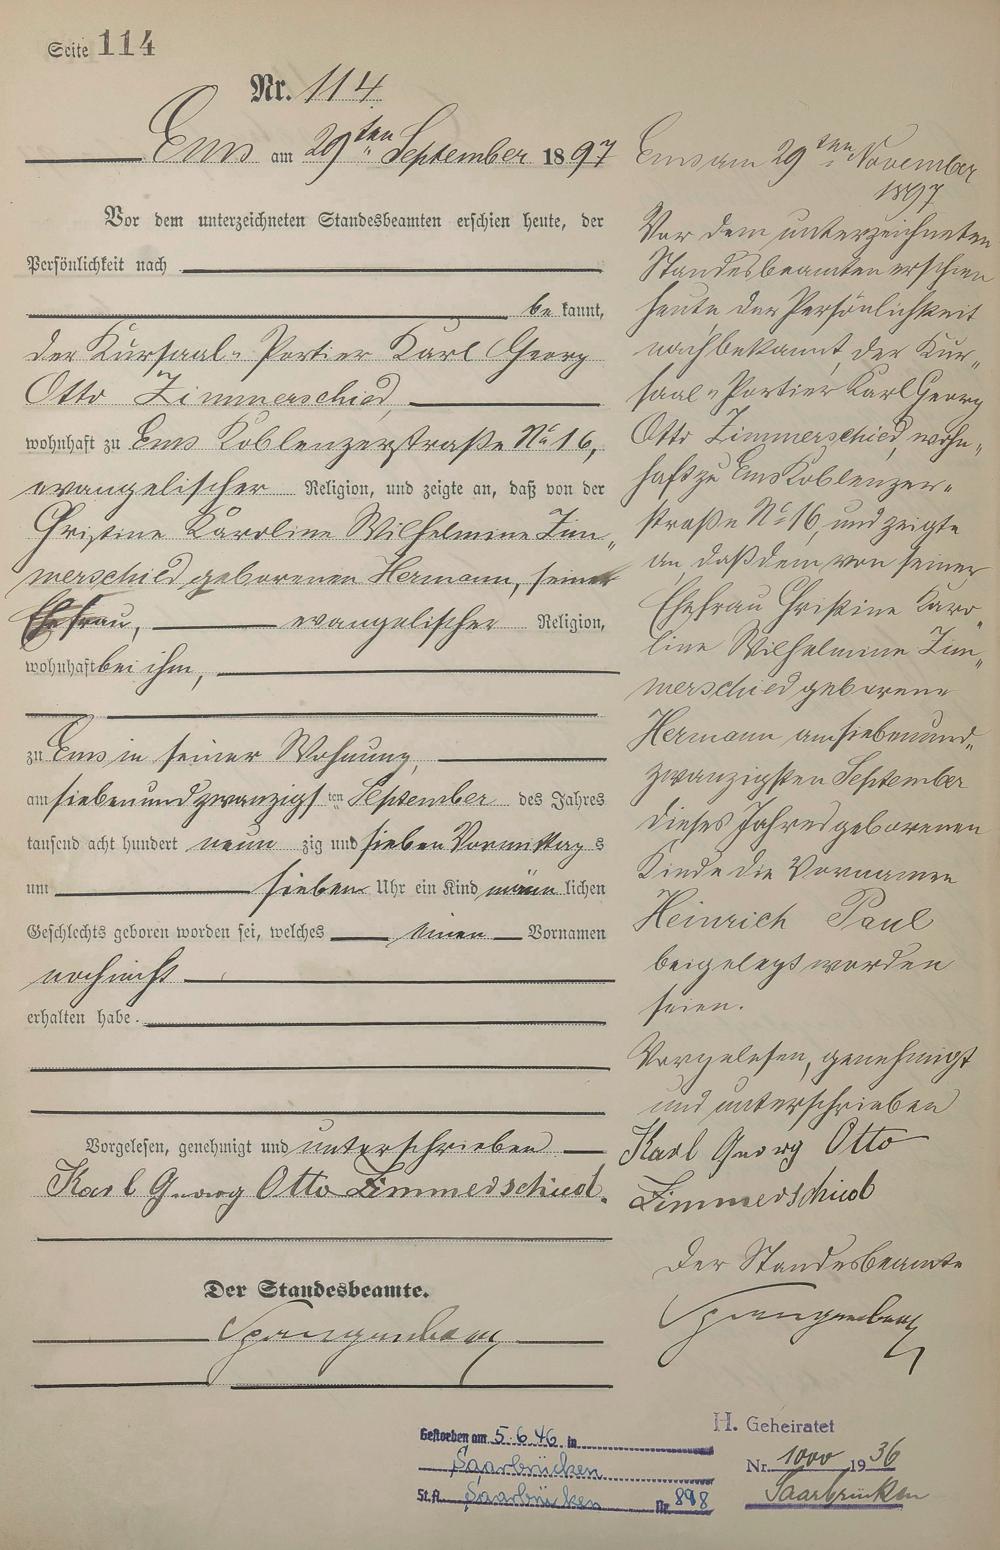 Seite 114
Nr. 114
Ems am 29ten September 1897
Vor dem unterzeichneten Standesbeamten erschien heute, der
Persönlichkeit nach
be kannt,
der Kursaal-Portier Karl Georg
Otto Zimmerschied,
wohnhaft zu Ems Koblenzerstraße No 16,
evangelischer Religion, und zeigte an, daß von der
Christine Karoline Wilhelmine Zim„
merschied geborenen Hermann, seiner
Ehefrau, evangelischer Religion,
wohnhaft bei ihm,
zu Ems in seiner Wohnung,
am siebenundzwanzigsten September des Jahres
tausend acht hundert neun zig und sieben Vormittag s
um sieben Uhr ein Kind männ lichen
Geschlechts geboren worden sei, welches einen Vornamen
noch nicht
erhalten habe.
Vorgelesen, genehmigt und unterschrieben
Karl Georg Otto Zimmerschied.
Der Standesbeamte.
Spangenberg
Ems am 29ten November
1897
Vor dem unterzeichneten
Standesbeamten erschien
heute der Persönlichkeit
nach bekannt, der Kur„
saal-Portier Karl Georg
Otto Zimmerschied, wohn„
haft zu Ems Koblenzer„
straße No 16, und zeigte
an, daß dem von seiner
Ehefrau Christine Karo„
line Wilhelmine Zim„
merschied geborene
Hermann am siebenund„
zwanzigsten September
dieses Jahres geborenen
Kinde die Vornamen
Heinrich Paul
beigelegt worden
seien.
Vorgelesen, genehmigt
und unterschrieben
Karl Georg Otto
Zimmerschied
Der Standesbeamte
Spangenberg
Gestorben am 5.6.46 in
Saarbrücken
St.A. Saarbrücken Nr. 898
H. Geheiratet
Nr. 1000 1936
Saarbrücken